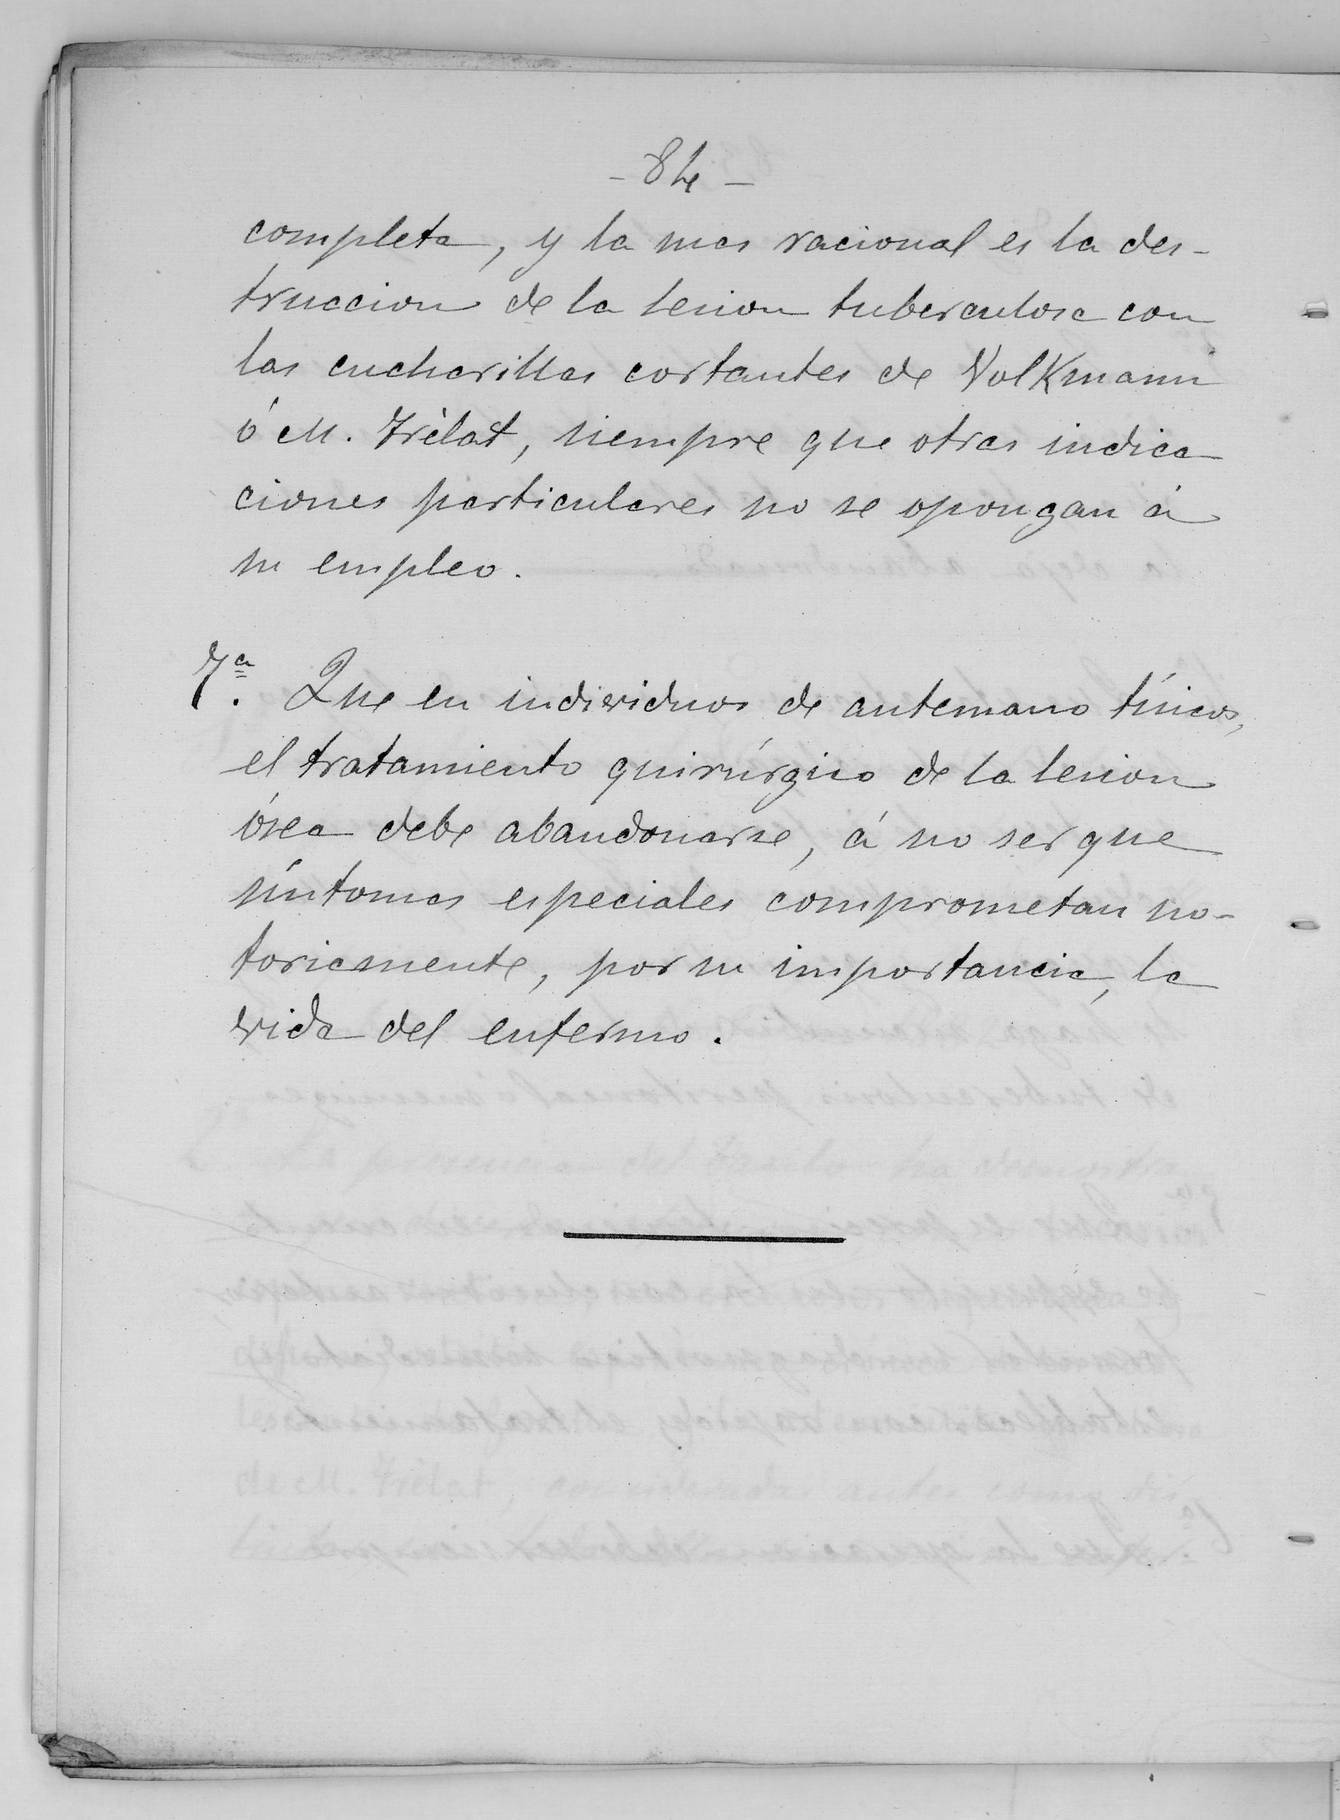 - 84 -
completa, y la mas racional es la des-
truccion de la lesion tuberculosa con
las cucharillas cortantes de Volkmann
ó M. Trèlat, siempre que otras indica
ciones particulares no se opongan á
su empleo.
7ª. Que en individuos de antemano tísicos,
el tratamiento quirúrgico de la lesion
ósea debe abandonarse, á no ser que
síntomas especiales comprometan no-
toriamente, por su importancia, la
vida del enfermo.